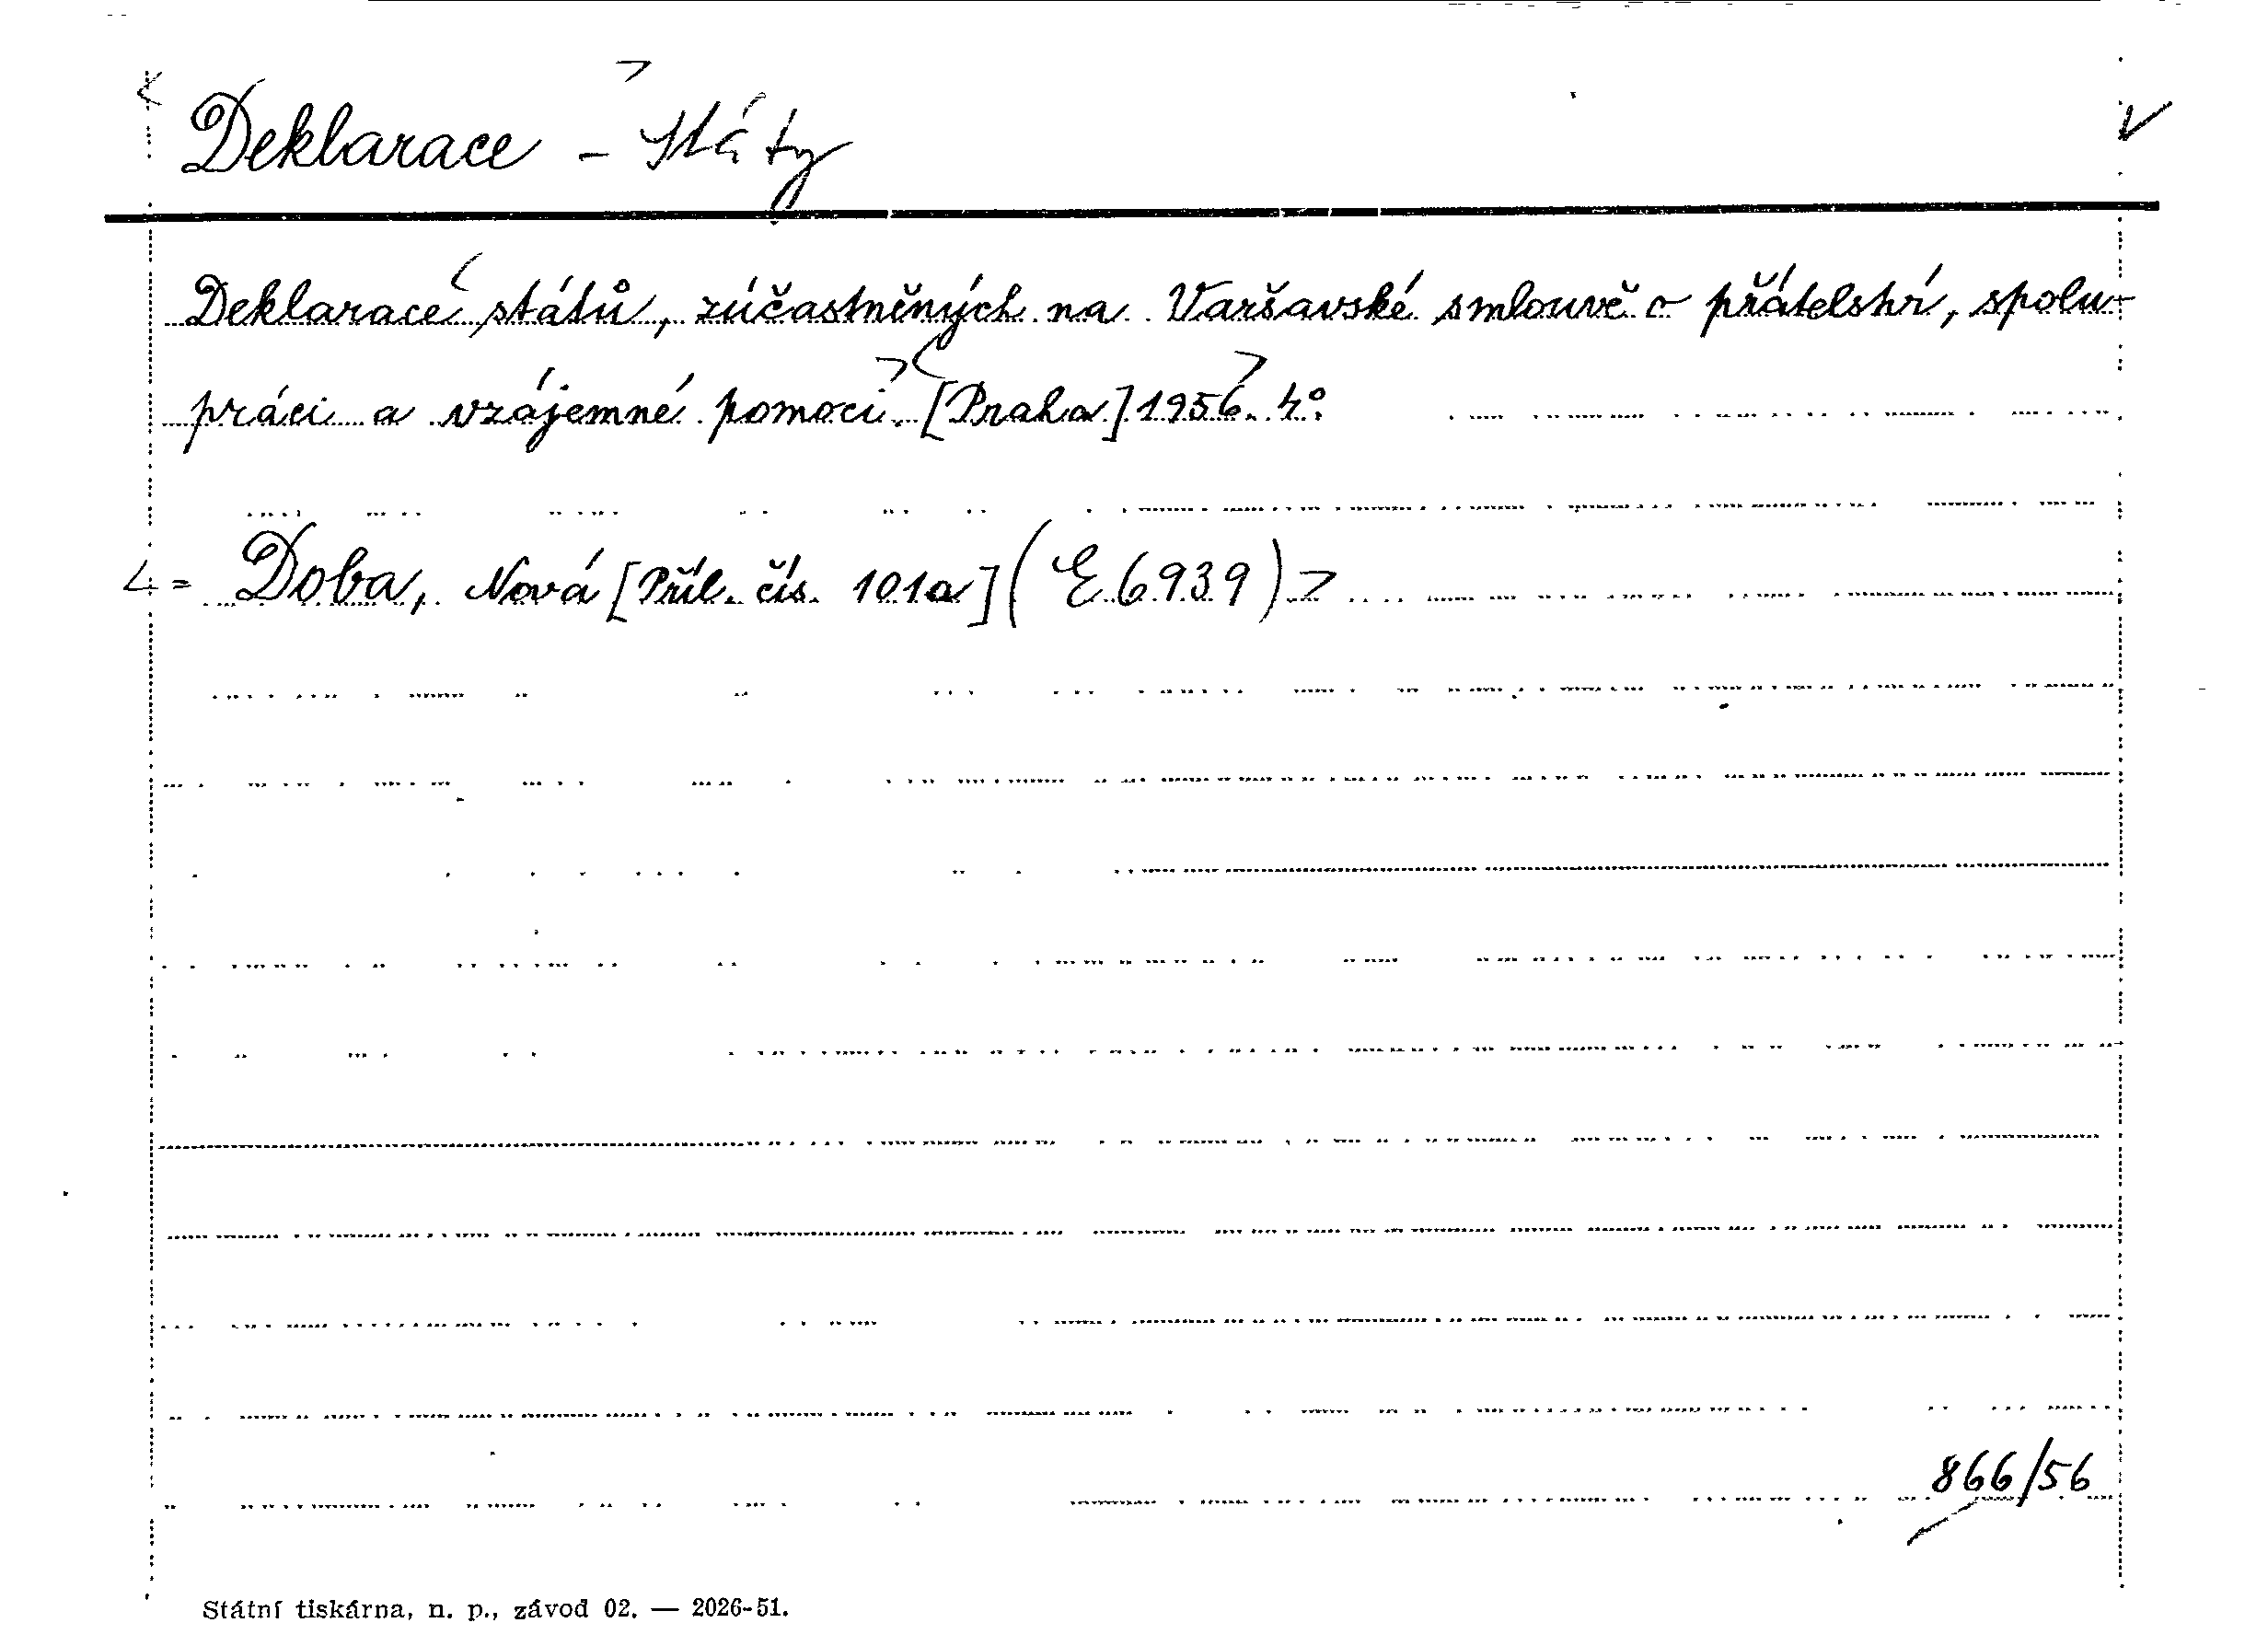 Deklarace - Státy
Deklarace států, zúčastněných na Varšavské smlouvě o přátelství, spolu-
práci a vzájemné pomoci. [Praha] 1956. 4°.
= Doba, Nová [Příl. čís. 101a] (E 6939)
866/56
Státní tiskárna, n. p., závod 02. — 2026-51.